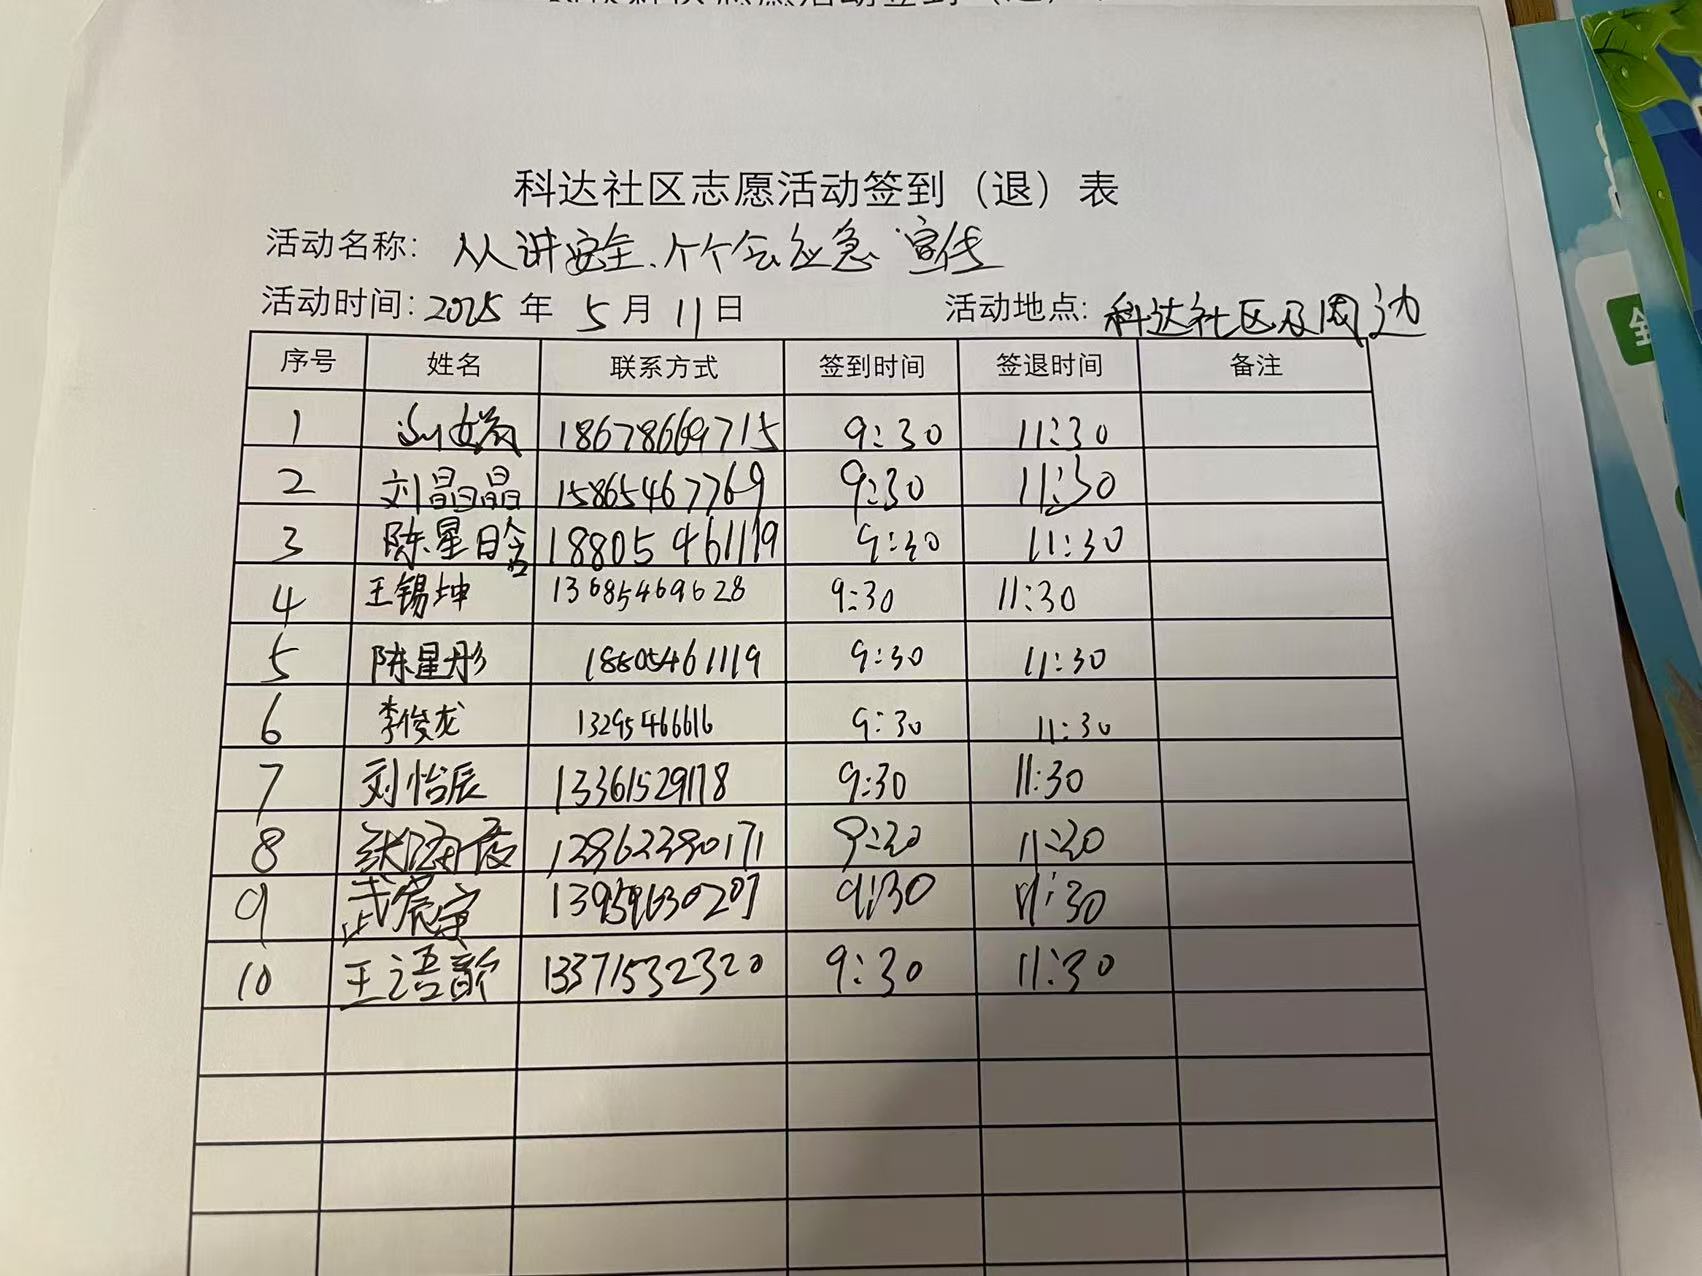 科达社区志愿活动签到（退）表
活动名称：人人讲安全、个个会应急 宣传
活动时间：2025年 5月 11日 活动地点：科达社区及周边
序号 姓名 联系方式 签到时间 签退时间 备注
1 18678669715 9:30 11:30
2 刘晶晶 15865467769 9:30 11:30
3 陈星晗 18805461119 9:30 11:30
4 王锡坤 13685469628 9:30 11:30
5 陈星彤 18805461119 9:30 11:30
6 李俊龙 13295466616 9:30 11:30
7 刘怡辰 13361529118 9:30 11:30
8 9:30 11:30
9 9:30 11:30
10 王语歆 13371532320 9:30 11:30
全